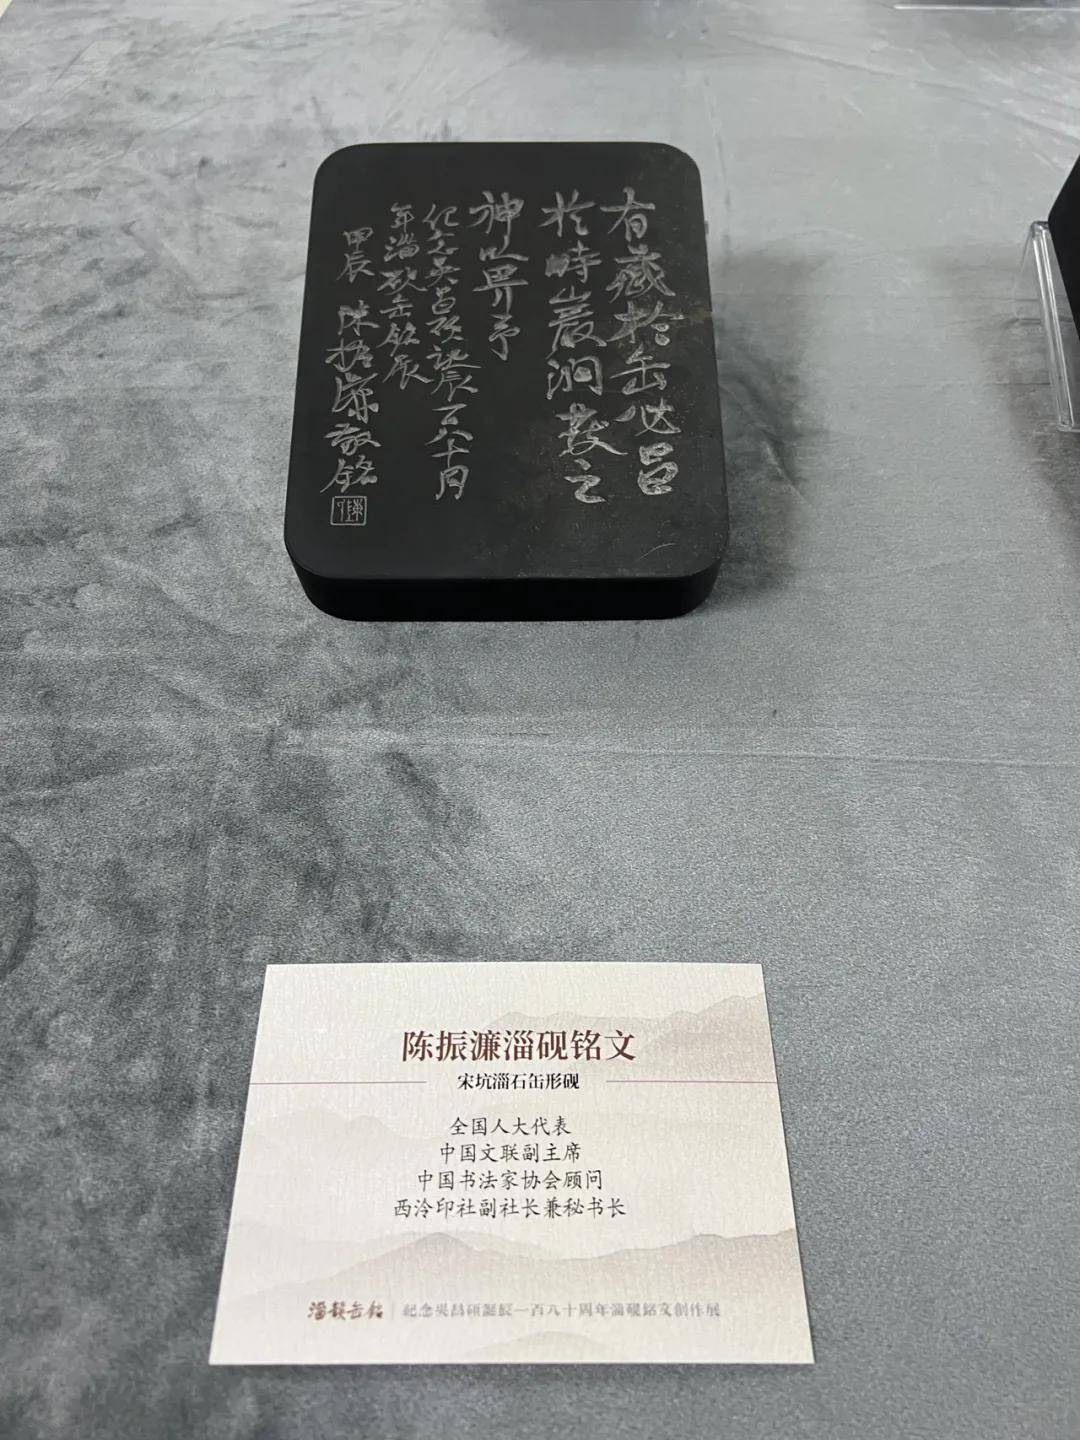 有藏於缶必昌
於時巖澗發之
神以畀予
紀念吴昌碩誕辰百八十周
年淄砚缶銘展
甲辰 陳振濂敬銘
陈振濂淄砚铭文
宋坑淄石缶形砚
全国人大代表
中国文联副主席
中国书法家协会顾问
西泠印社副社长兼秘书长
淄韻缶銘 紀念吳昌碩誕辰一百八十周年淄硯銘文創作展